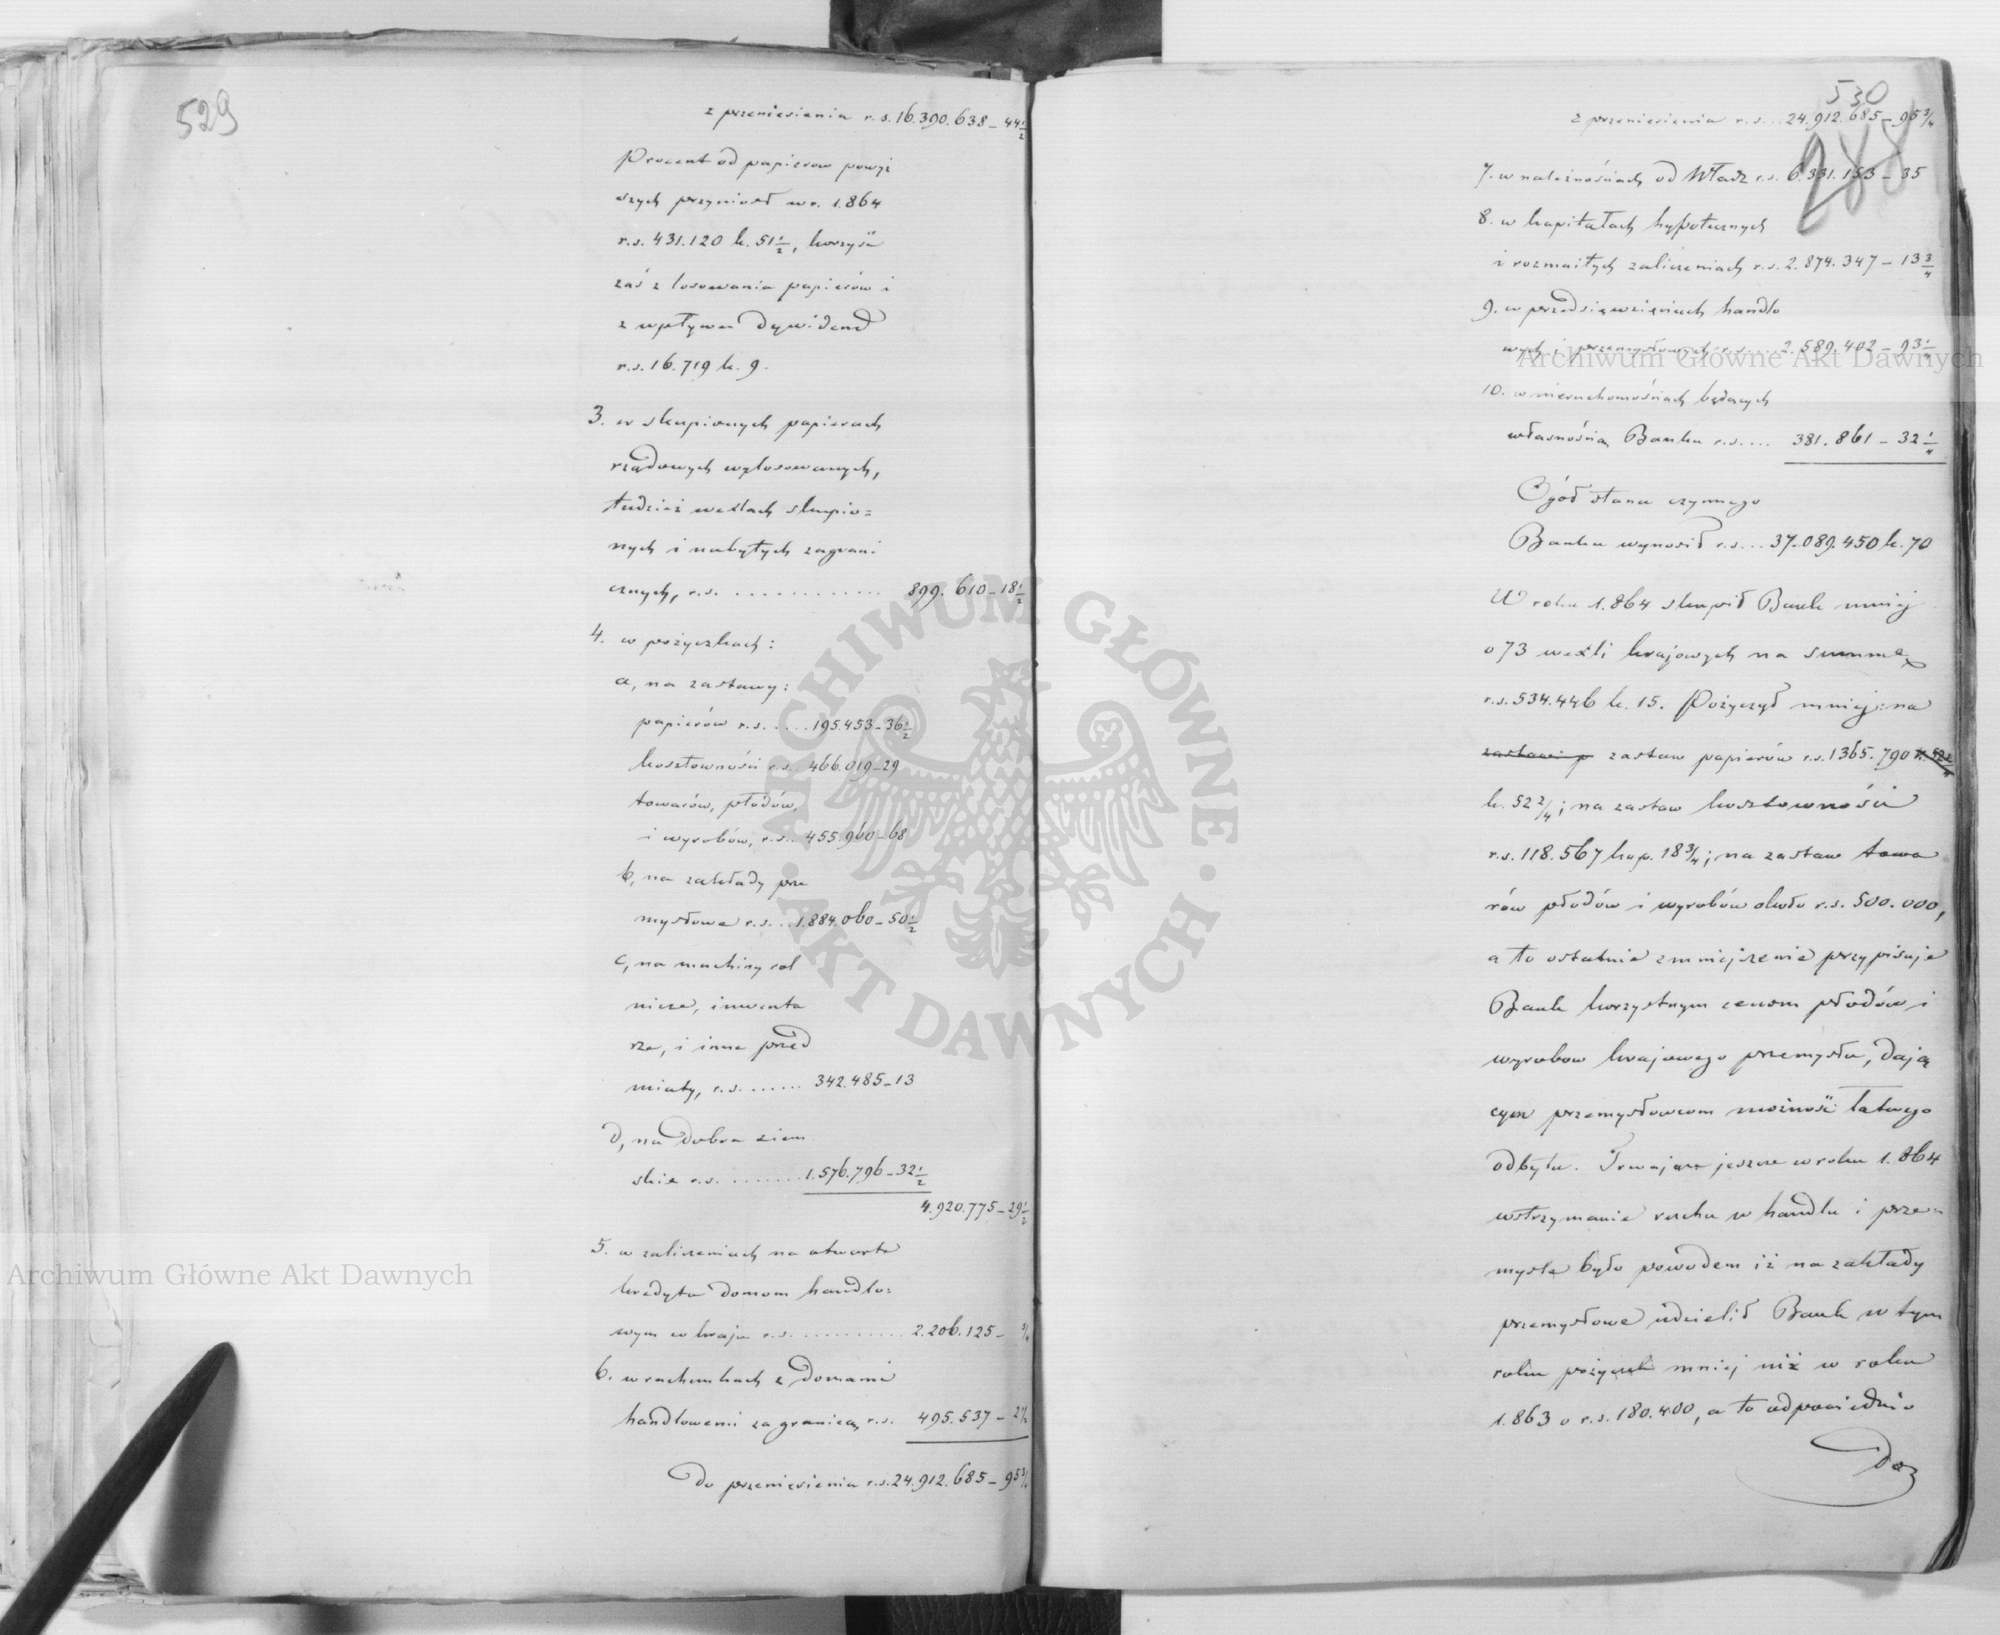 529
z przeniesienia r.s. 16.390.638 – 44 1/2
Procent od papierow powyż
szych przyniosł w r. 1.864
r.s. 431.120 k. 51 1/2, korzyść
zaś z losowania papierów i
z wpływu dywidend
r.s. 16.719 k. 9.
3. w skupionych papierach
rządowych wylosowanych,
tudzież wexlach skupio=
nych i nabytych zagrani
cznych, r.s. ............ 899.610 – 18 1/2
4. w pożyczkach:
a, na zastawy:
papierów r.s. .... 195.453 – 36 1/2
kosztowności r.s.. 466.019 – 29
towarów, płodów,
i wyrobów, r.s.. 455.960 – 68
b, na zakłady prze
mysłowe r.s. .. 1.884.060 – 50 1/2
c, na machiny rol
nicze, inwenta
rze, i inne przed
mioty, r.s. ...... 342.485 – 13
d, na dobra ziem
skie r.s. ........ 1.576.796 – 32 1/2
4.920.775 – 29 1/2
5. w zaliczeniach na otwarte
kredyta domom handlo=
wym w kraju r.s. ........... 2.206.125 – 3/4
6. w rachunkach z domami
handlowemi za granicą r.s. 495.537 – 2 1/2
Do przeniesienia r.s. 24.912.685 – 95 3/4
530
288
z przeniesienia r.s. .. 24.912.685 – 95 3/4
7. w należnościach od Władz r.s. 6.331.153 – 35
8. w kapitałach hypotecznych
i rozmaitych zaliczeniach r.s. 2.874.347 – 13 3/4
9. w przedsięwzięciach handlo
wych i przemysłowych r.s. .... 2.589.402 – 93 1/4
10. w nieruchomościach będących
własnością Banku r.s. .... 381.861 – 32 1/4
Ogół stanu czynnego
Banku wynosił r.s. .. 37.089.450 k. 70
W roku 1.864 skupił Bank mniej
o 73 wexli krajowych na summę
r.s. 534.446 k. 15. Pożyczył mniej: na
zastawi p zastaw papierów r.s. 1365.790 k. 52 2/4
k. 52 2/4; na zastaw kosztowności
r.s. 118.567 kop. 18 3/4; na zastaw towa
rów płodów i wyrobów około r.s. 500.000,
a to ostatnie zmniejszenie przypisuje
Bank korzystnym cenom płodów i
wyrobow krajowego przemysłu, dają
cym przemysłowcom możność łatwego
odbytu. Trwające jeszcze w roku 1.864
wstrzymanie ruchu w handlu i prze=
myśle było powodem iż na zakłady
przemysłowe udzielił Bank w tym
roku pożyczek mniej niż w roku
1.863 o r.s. 180.400, a to odpowiednio
do
Archiwum Główne Akt Dawnych
Archiwum Główne Akt Dawnych
ARCHIWUM GŁÓWNE · AKT DAWNYCH ·